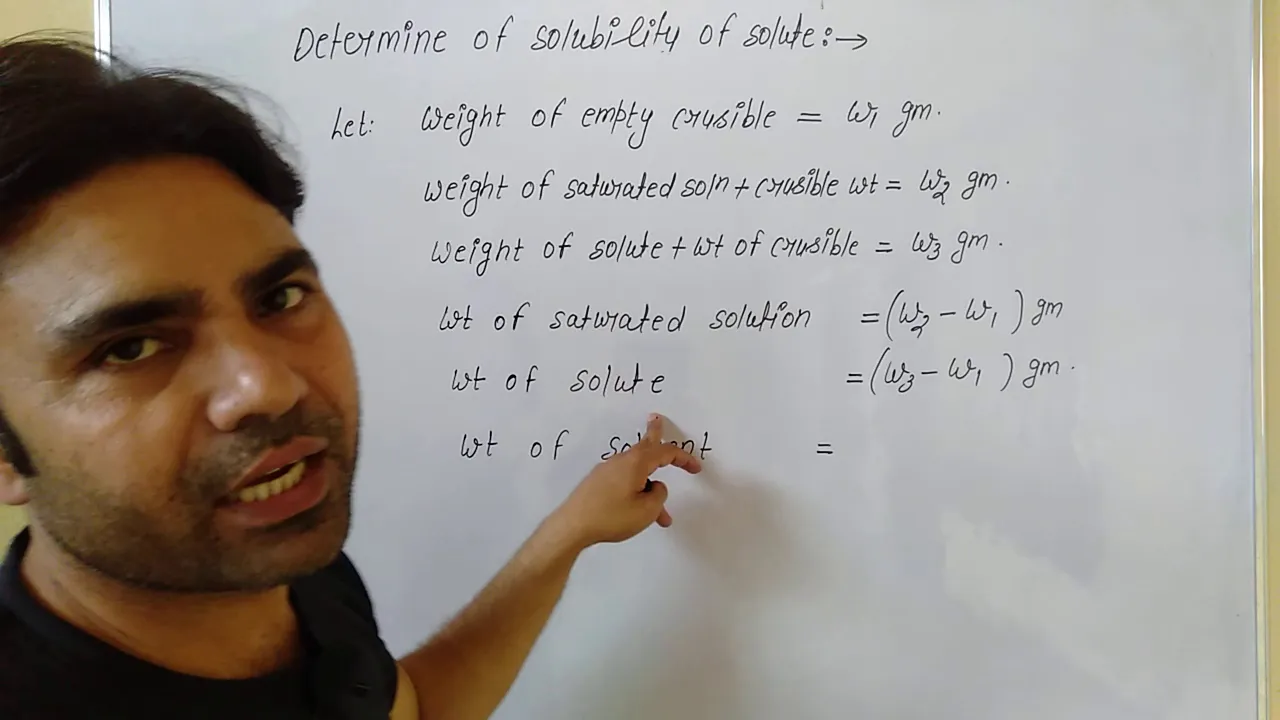 Determine of solubility of solute:→
Let: Weight of empty crusible = W1 gm.
Weight of saturated soln + crusible wt = W2 gm.
Weight of solute + wt of crusible = W3 gm.
Wt of saturated solution = (W2 - W1) gm
Wt of solute = (W3 - W1) gm.
Wt of =